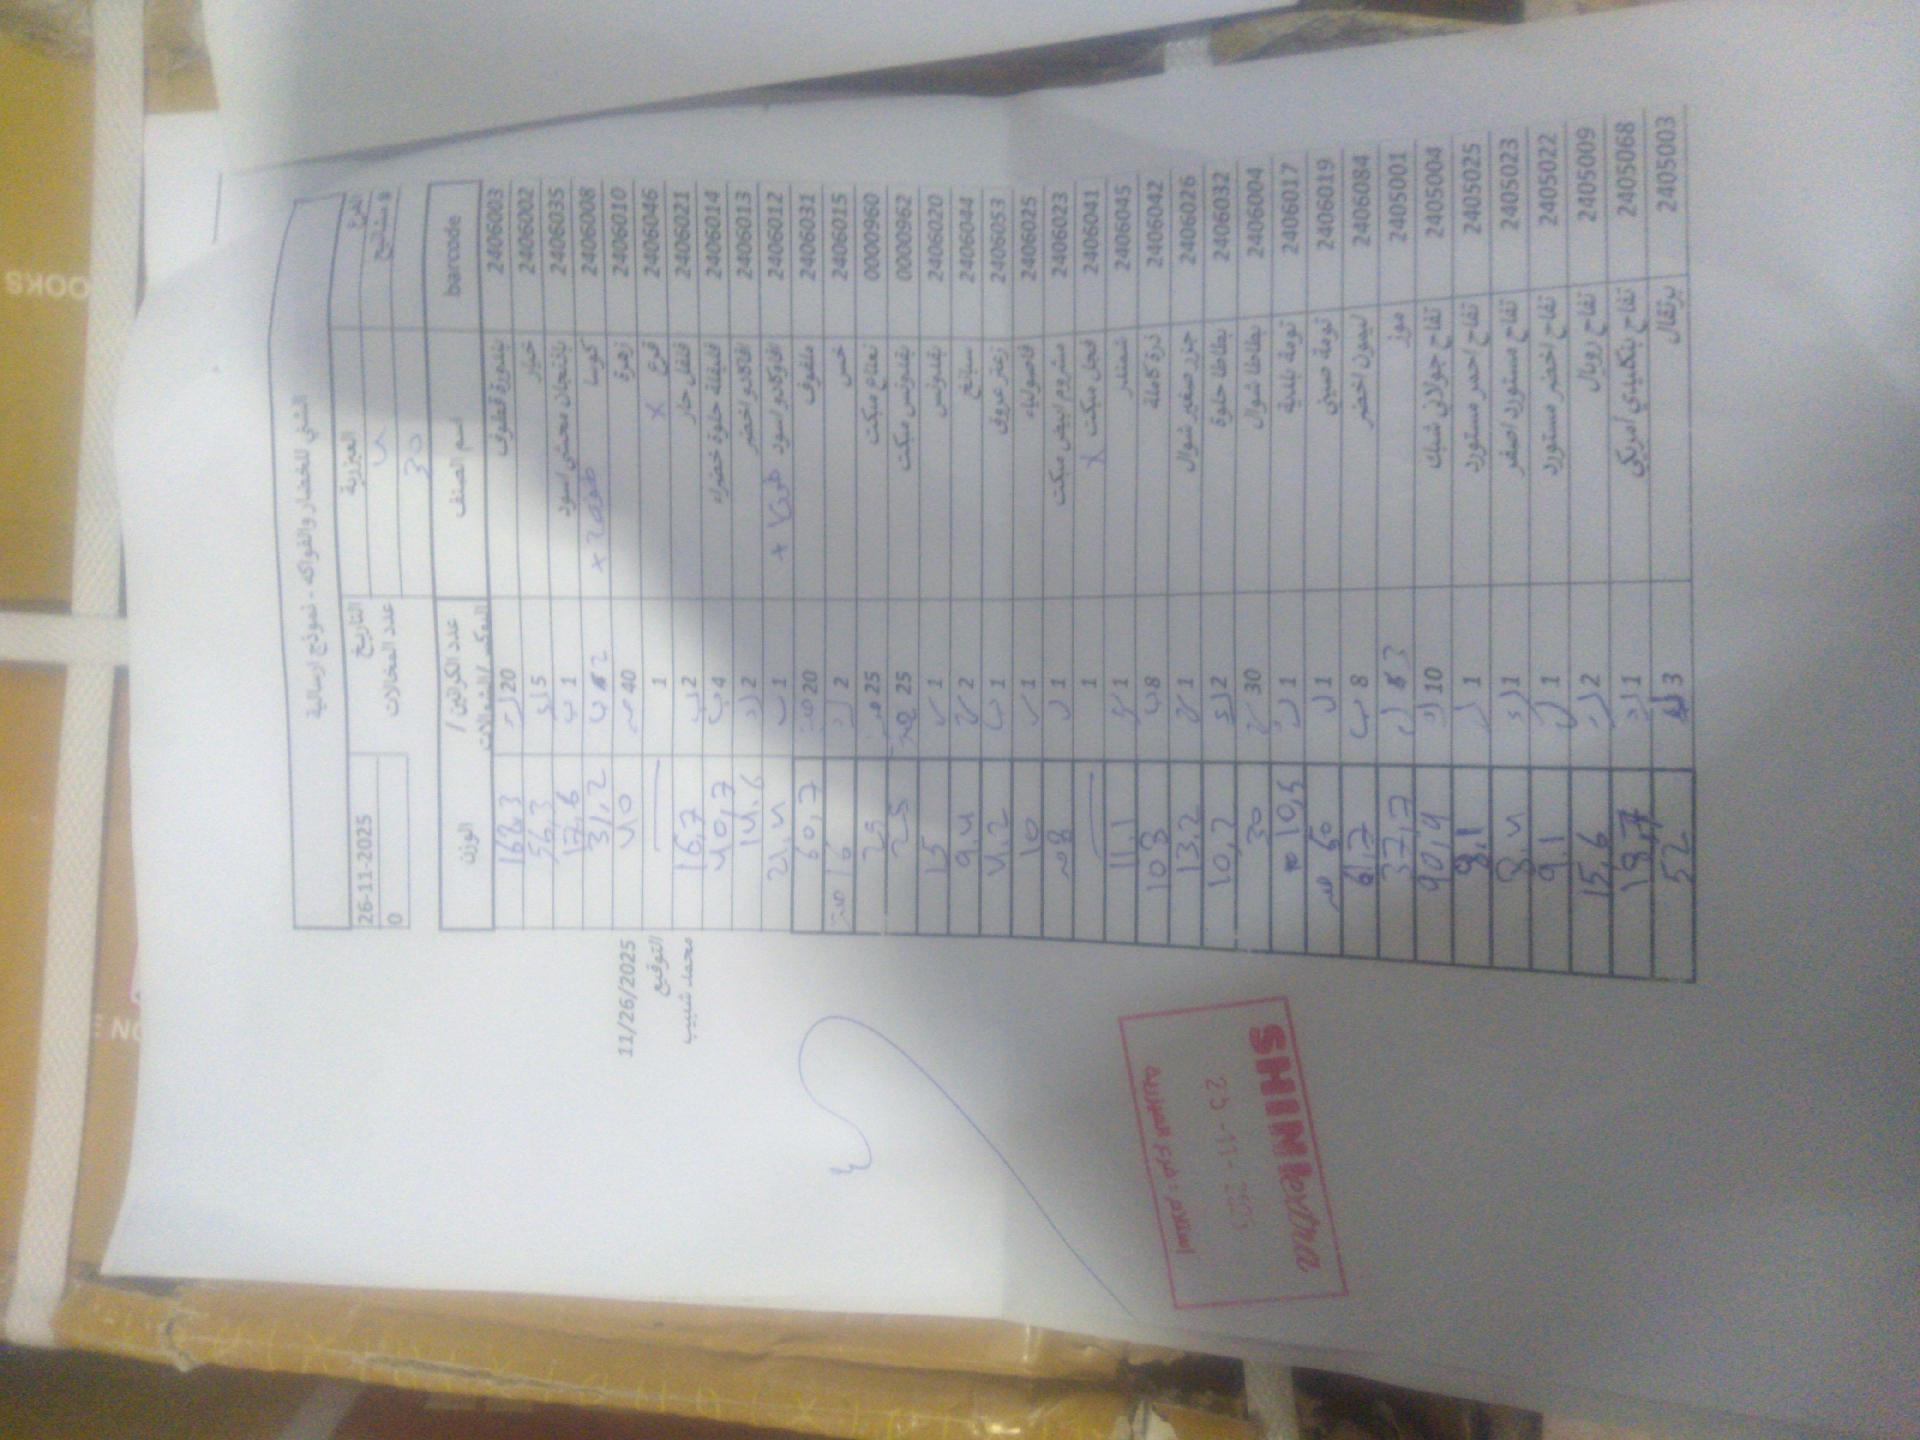 الشني للخضار والفواكه - نموذج ارسالية
الفرع العيزرية التاريخ 26-11-2025
عدد المخالات 0
barcode اسم الصنف عدد الكراتين / البكس/الشوالات الوزن
2406003 بندورة قطوف 20
2406002 خيار 5 56,3
2406035 باذنجان محشي اسود ب 1 17,6
2406008 كوسا ب 2 31,2
2406010 زهرة 40 40
2406046 قرع x 1
2406021 فلفل حار ب 2 16,7
2406014 فليفلة حلوة خضراء ب 4 40,7
2406013 افاكادو اخضر 2 14.6
2406012 افوكادو اسود ب 1 21,4
2406031 ملفوف 20 60,7
2406015 خس 2 16
0000960 نعناع مبكت 25 25
0000962 بقدونس مبكت 25 25
2406020 بقدونس 1 15
2406044 سبانخ 2 9.4
2406053 زعتر عروق ب 1 4,2
2406025 فاصولياء 1 10
2406023 مشروم ابيض مبكت 1 8
2406041 فجل مبكت x 1
2406045 شمندر 1 11,1
2406042 ذرة كاملة ب 8 103
2406026 جزر صغير شوال 1 13,2
2406032 بطاطا حلوة 2 10,2
2406004 بطاطا شوال 30 30
2406017 ثومة بلدية 1 10,5
2406019 ثومة صيني 1
2406084 ليمون اخضر ب 8 61,7
2405001 موز 3 37,7
2405004 تفاح جولاني شبك 10 90,4
2405025 تفاح احمر مستورد 1 8,1
2405023 تفاح مستورد اصفر 1 8.4
2405022 تفاح اخضر مستورد 1 9.1
2405009 تفاح رويال 2 15,6
2405068 تفاح بنكليدي أمريكي 1 18,7
2405003 برتقال 3 52
11/26/2025
التوقيع
محمد شبيب
SHINI extra